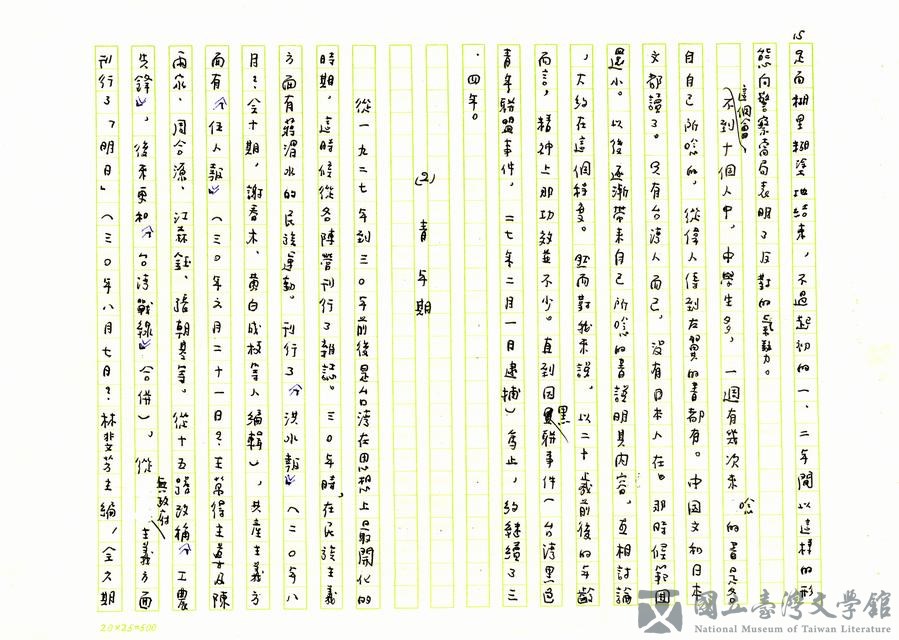 15
是而糊里糊塗地結束,不過起初的一、二年間以這樣的形
態向警察當局表明了反對的氣勢力。
這個會,不到十個人中,中學生多,一週有幾次來唸的書是各
自自己所唸的,從偉人傳到左翼的書都有。中国文和日本
文都讀了。只有台湾人而已,沒有日本人在。那時候範圍
還小。以後逐漸帶來自己所唸的書說明其內容,互相討論
,大約在這個程度。然而對我來說,以二十歲前後的年齡
而言,精神上那功效並不少。直到因黑聯事件(台湾黑色
青年聯盟事件,二七年二月一日逮捕)為止,約継續了三
、四年。
(2) 青年期
從一九二七年到三〇年前後是台湾在思想上最開化的
時期。這時候從各陣營刊行了雜誌。三〇年時,在民族主義
方面有蔣渭水的民族運動。刊行了『洪水報』(三〇年八
月?全十期,謝春木、黄白成枝等人編輯),共產主義方
面有『伍人報』(三〇年六月二十一日?王萬得主導及陳
兩家、周合源、江森鈺、張朝基等。從十五號改稱『工農
先鋒』,後來更和『台湾戰線』合併),從無政府主義方面
刊行了「明日」(三〇年八月七日?林斐芳主編,全六期
20×25=500
國立臺灣文學館
National Museum of Taiwan Literature